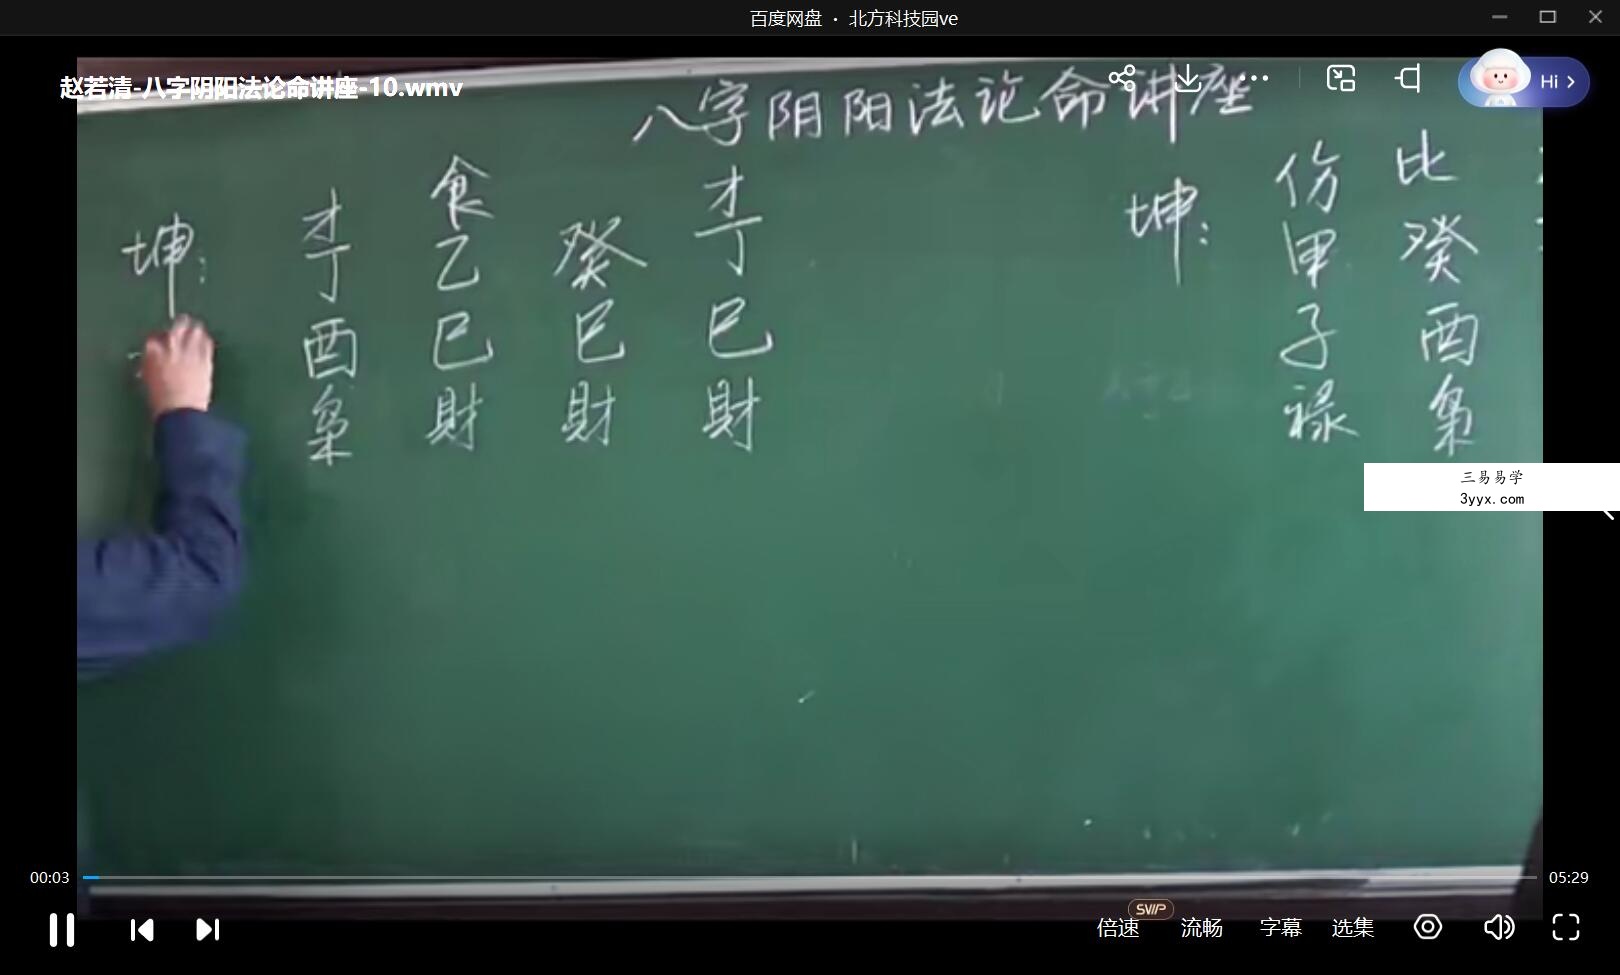 百度网盘 · 北方科技园ve
赵若清-八字阴阳法论命讲座-10.wmv
Hi
八字阴阳法论命讲座
坤：
才 食 才
丁 乙 癸 丁
酉 巳 巳 巳
枭 財 財 財
坤：
伤 比
甲 癸
子 酉
禄 枭
三易易学
3yyx.com
00:03
05:29
SVIP
倍速 流畅 字幕 选集